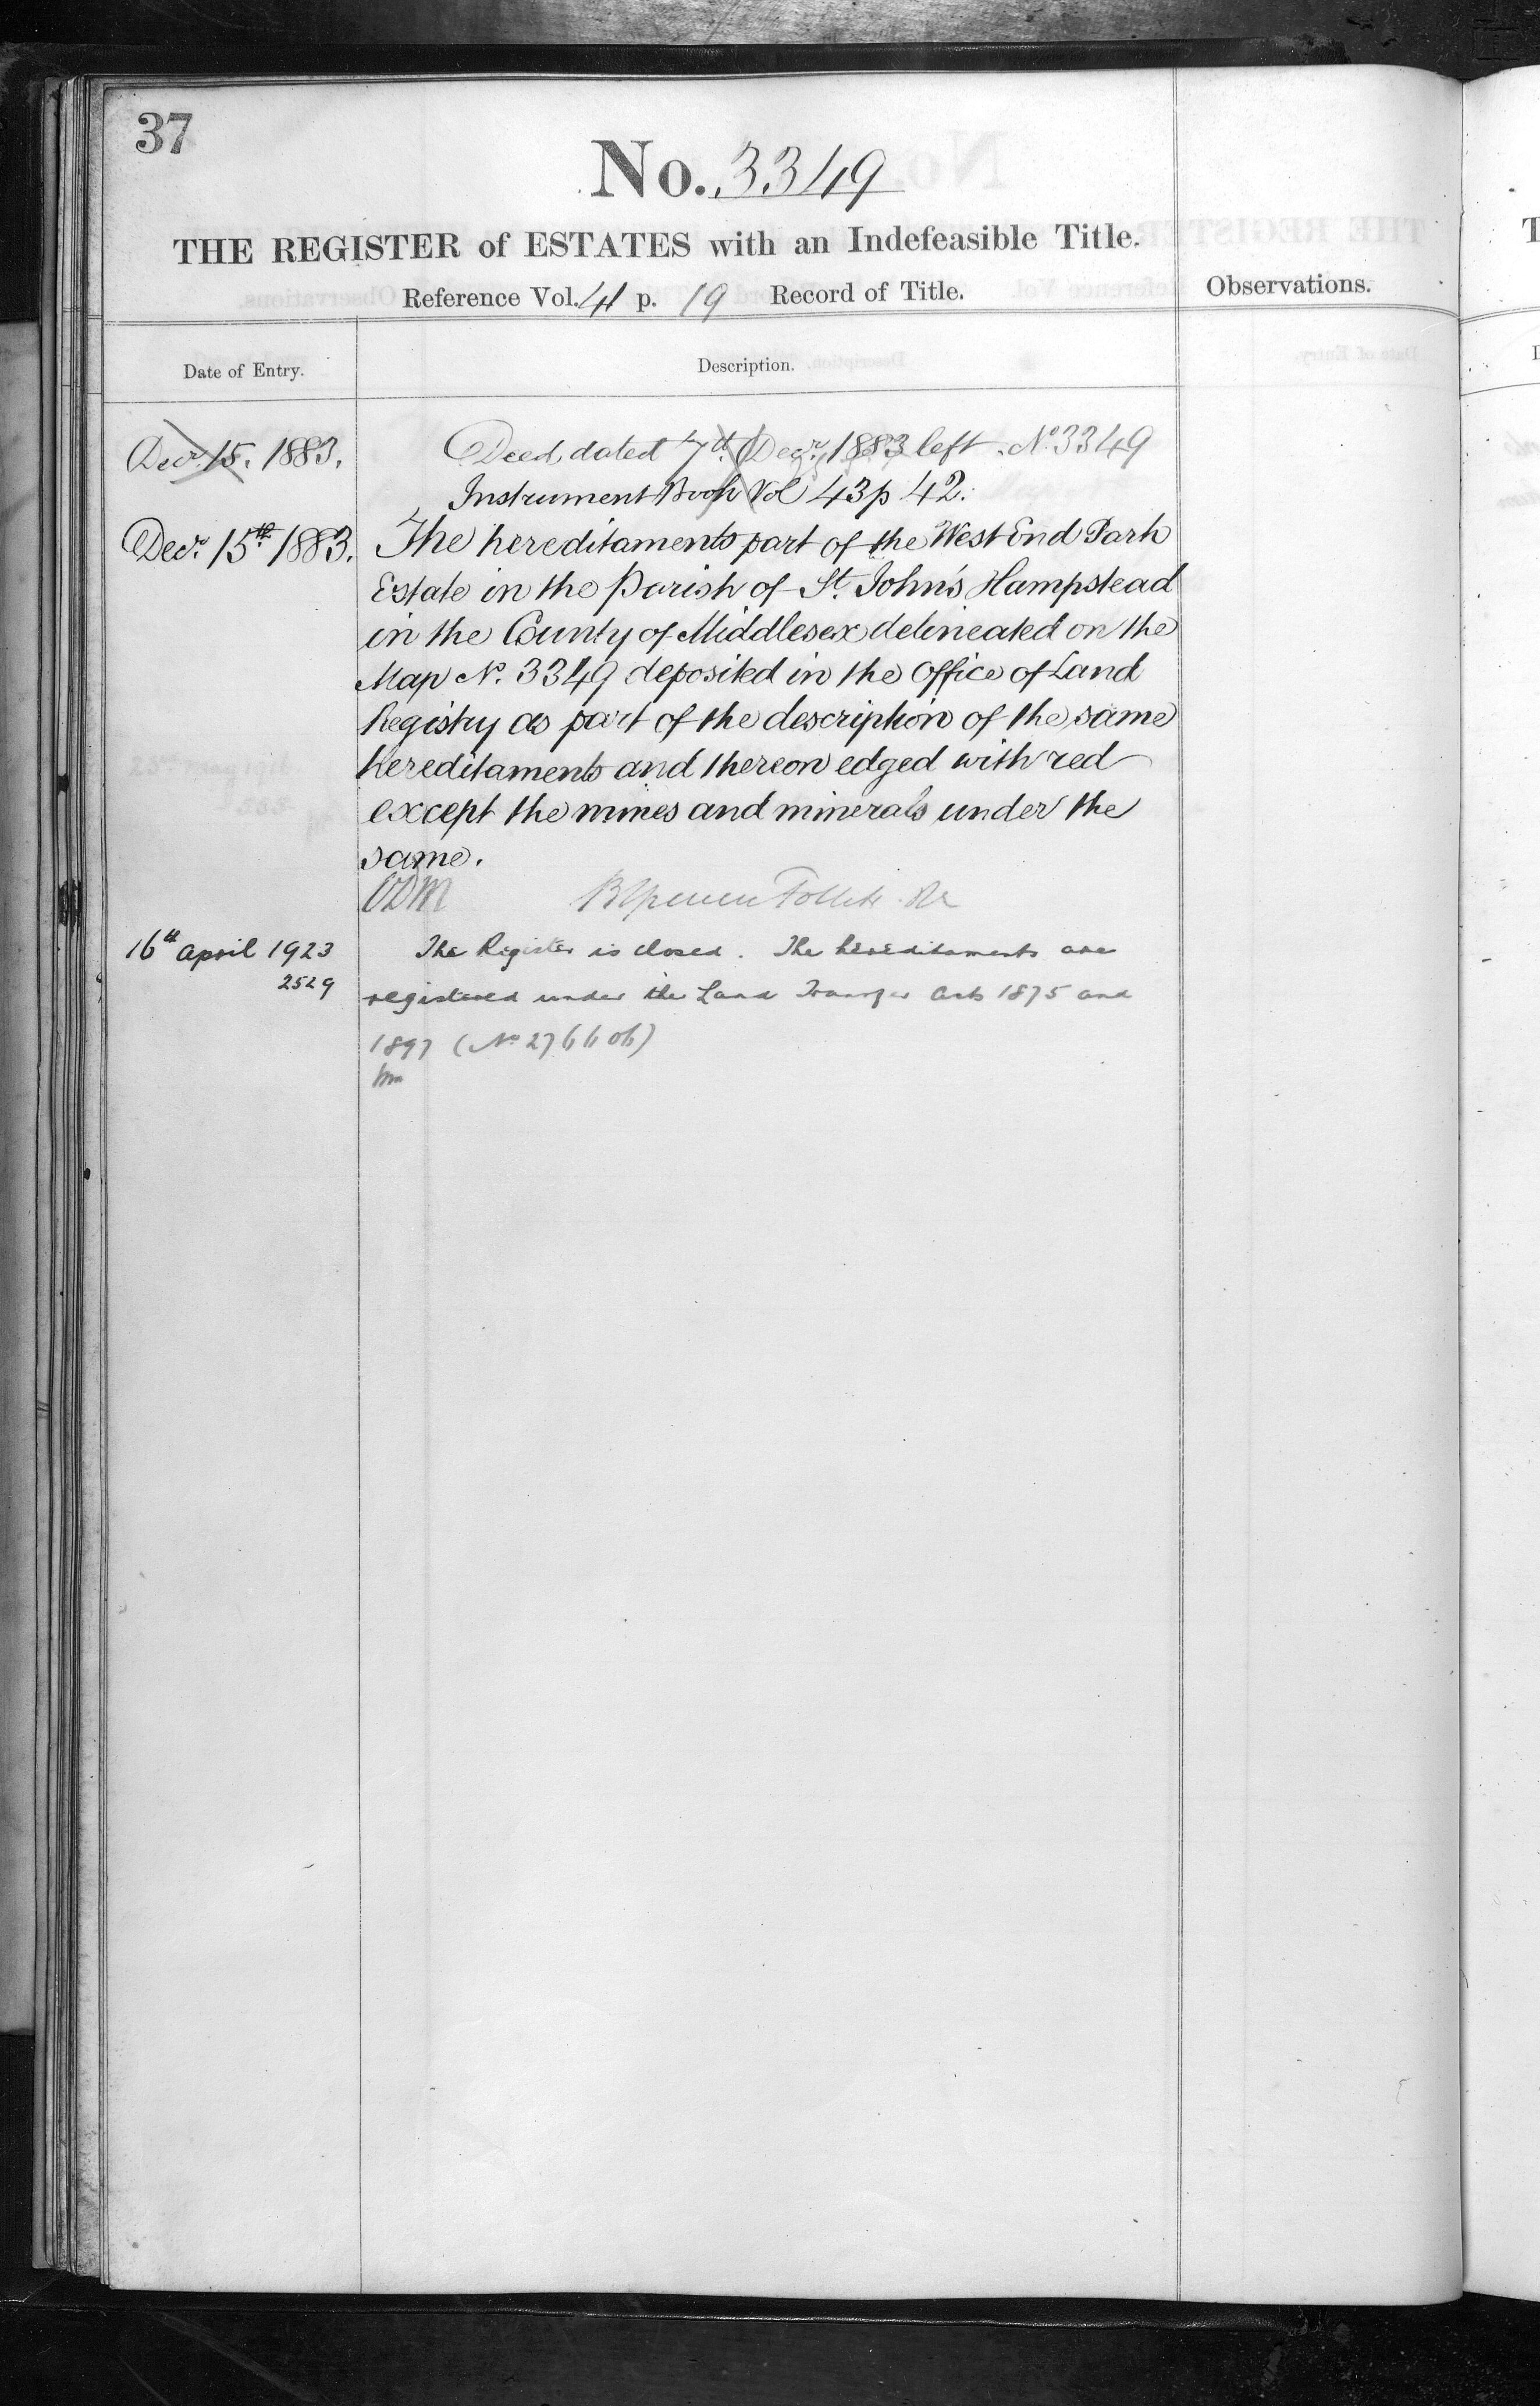 37
No. 3349
THE REGISTER of ESTATES with an Indefeasible Title.
Reference Vol. 41 p. 19 Record of Title.
Observations.
Date of Entry.
Description.
Decr. 15. 1883.
Deed dated 7th Decr. 1883 left No. 3349
Instrument Book Vol 43 p 42.
Decr. 15th 1883.
The hereditaments part of the West End Park
Estate in the Parish of St. John's Hampstead
in the County of Middlesex delineated on the
Map No. 3349 deposited in the Office of Land
Registry as part of the description of the same
hereditaments and thereon edged with red
except the mines and minerals under the
same.
Follett
16th April 1923
2529
The Register is closed. The hereditaments are
registered under the Land Transfer Acts 1875 and
1897 (No 276606)